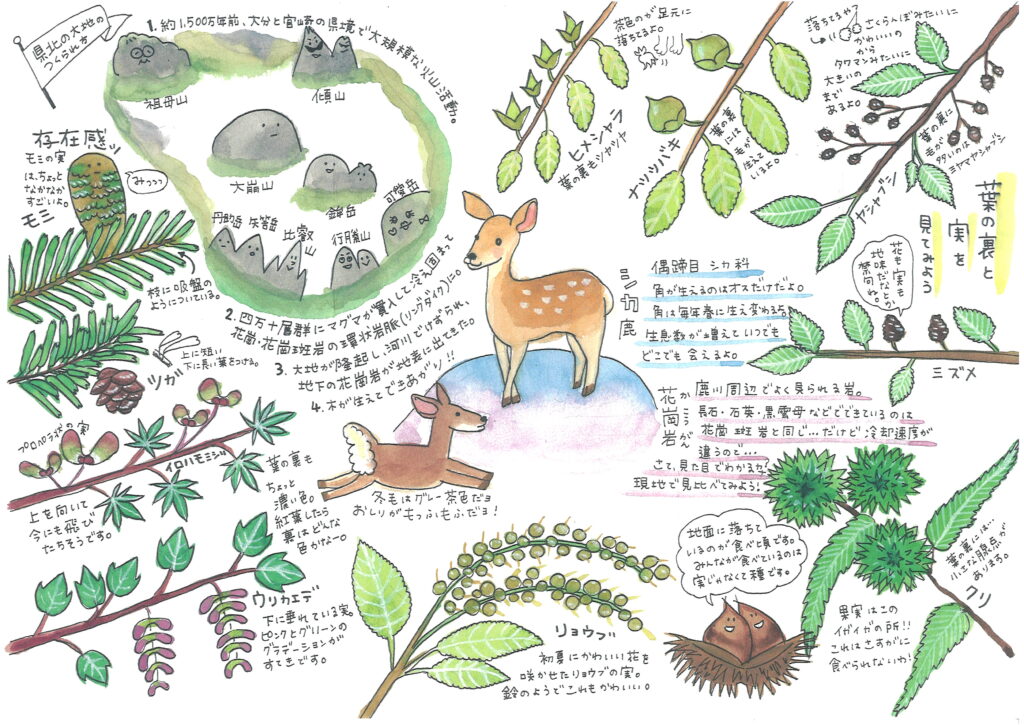 県北の大地の
つくられ方
1. 約1,500万年前、大分と宮崎の県境で大規模な火山活動。
祖母山
傾山
大崩山
鉾岳
可愛岳
丹助岳
矢筈岳
比叡山
行縢山
2. 四万十層群にマグマが貫入して冷え固まって
花崗・花崗斑岩の環状岩脈(リングダイク)に。
3. 大地が隆起し、河川でけずられ、
地下の花崗岩が地表に出てきた。
4. 木が生えてできあがり!!
存在感ッ
モミの実
は、ちょっと
なかなか
すごいよ。
モミ
みっっっ
枝に吸盤の
ようについている。
上に短い
下に長い葉をつける。
ツガ
プロペラ状の実
イロハモミジ
上を向いて
今にも飛び
たちそうです。
葉の裏も
ちょっと
濃い色。
紅葉したら
裏はどんな
色かなー。
ウリカエデ
下に垂れている実。
ピンクとグリーンの
グラデーションが
すてきです。
茶色のが足元に
落ちてるよ。
ヒメシャラ
葉の裏もツヤツヤ
ナツツバキ
葉の裏
には
毛が
生えて
いるよ。
落ちてるや?
さくらんぼみたいに
かわいいの
から
タワマンみたいに
大きいの
まで
あるよ。
ヤシャブシ
葉の裏に
毛が
多いのは
ミヤマヤシャブシ
葉の裏と
実を
見てみよう
花も実も
地味だなとか
禁句ね。
ミズメ
シカ 鹿
偶蹄目 シカ科
角が生えるのはオスだけだよ。
角は毎年春に生え変わるよ。
生息数が増えていつでも
どこでも会えるよ。
花崗岩
かこうがん
鹿川周辺でよく見られる岩。
長石・石英・黒雲母などでできているのは
花崗斑岩と同じ…だけど冷却速度が
違うので…
さて、見た目でわかるか!
現地で見比べてみよう!
冬毛はグレー茶色だヨ
おしりがもっふもふだヨ!
リョウブ
初夏にかわいい花を
咲かせたリョウブの実。
鈴のようでこれもかわいい。
地面に落ちて
いるのが食べ頃です。
みんなが食べているのは
実じゃなくて種です。
葉の裏には…
小さな腺点が
あります。
クリ
果実はこの
イガイガの所!!
これはさすがに
食べられないわ!